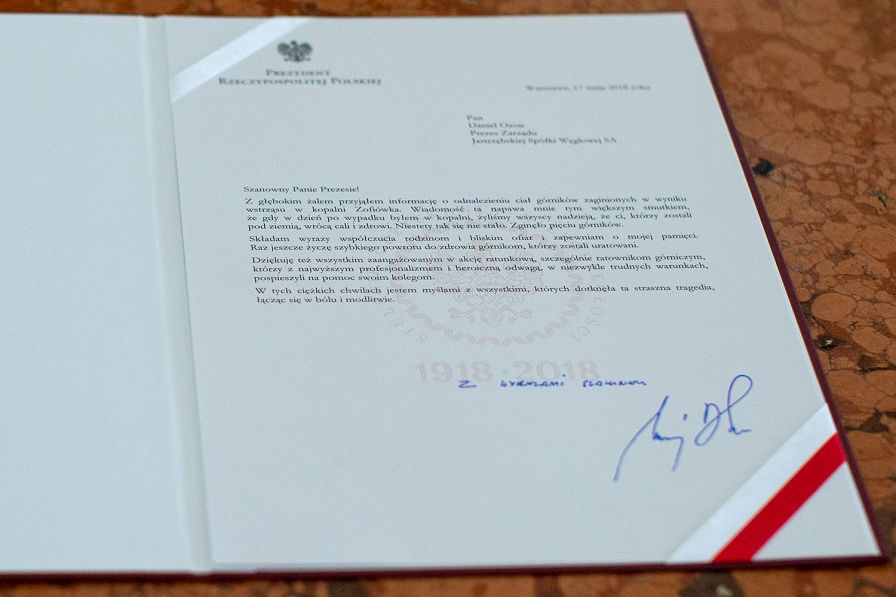 PREZYDENT
RZECZYPOSPOLITEJ POLSKIEJ
Warszawa, 17 maja 2018 roku
Pan
Daniel Ozon
Prezes Zarządu
Jastrzębskiej Spółki Węglowej SA
Szanowny Panie Prezesie!
Z głębokim żalem przyjąłem informację o odnalezieniu ciał górników zaginionych w wyniku
wstrząsu w kopalni Zofiówka. Wiadomość ta napawa mnie tym większym smutkiem,
że gdy w dzień po wypadku byłem w kopalni, żyliśmy wszyscy nadzieją, że ci, którzy zostali
pod ziemią, wrócą cali i zdrowi. Niestety tak się nie stało. Zginęło pięciu górników.
Składam wyrazy współczucia rodzinom i bliskim ofiar i zapewniam o mojej pamięci.
Raz jeszcze życzę szybkiego powrotu do zdrowia górnikom, którzy zostali uratowani.
Dziękuję też wszystkim zaangażowanym w akcję ratunkową, szczególnie ratownikom górniczym,
którzy z najwyższym profesjonalizmem i heroiczną odwagą, w niezwykle trudnych warunkach,
pospieszyli na pomoc swoim kolegom.
W tych ciężkich chwilach jestem myślami z wszystkimi, których dotknęła ta straszna tragedia,
łącząc się w bólu i modlitwie.
1918 · 2018
Z wyrazami szacunku